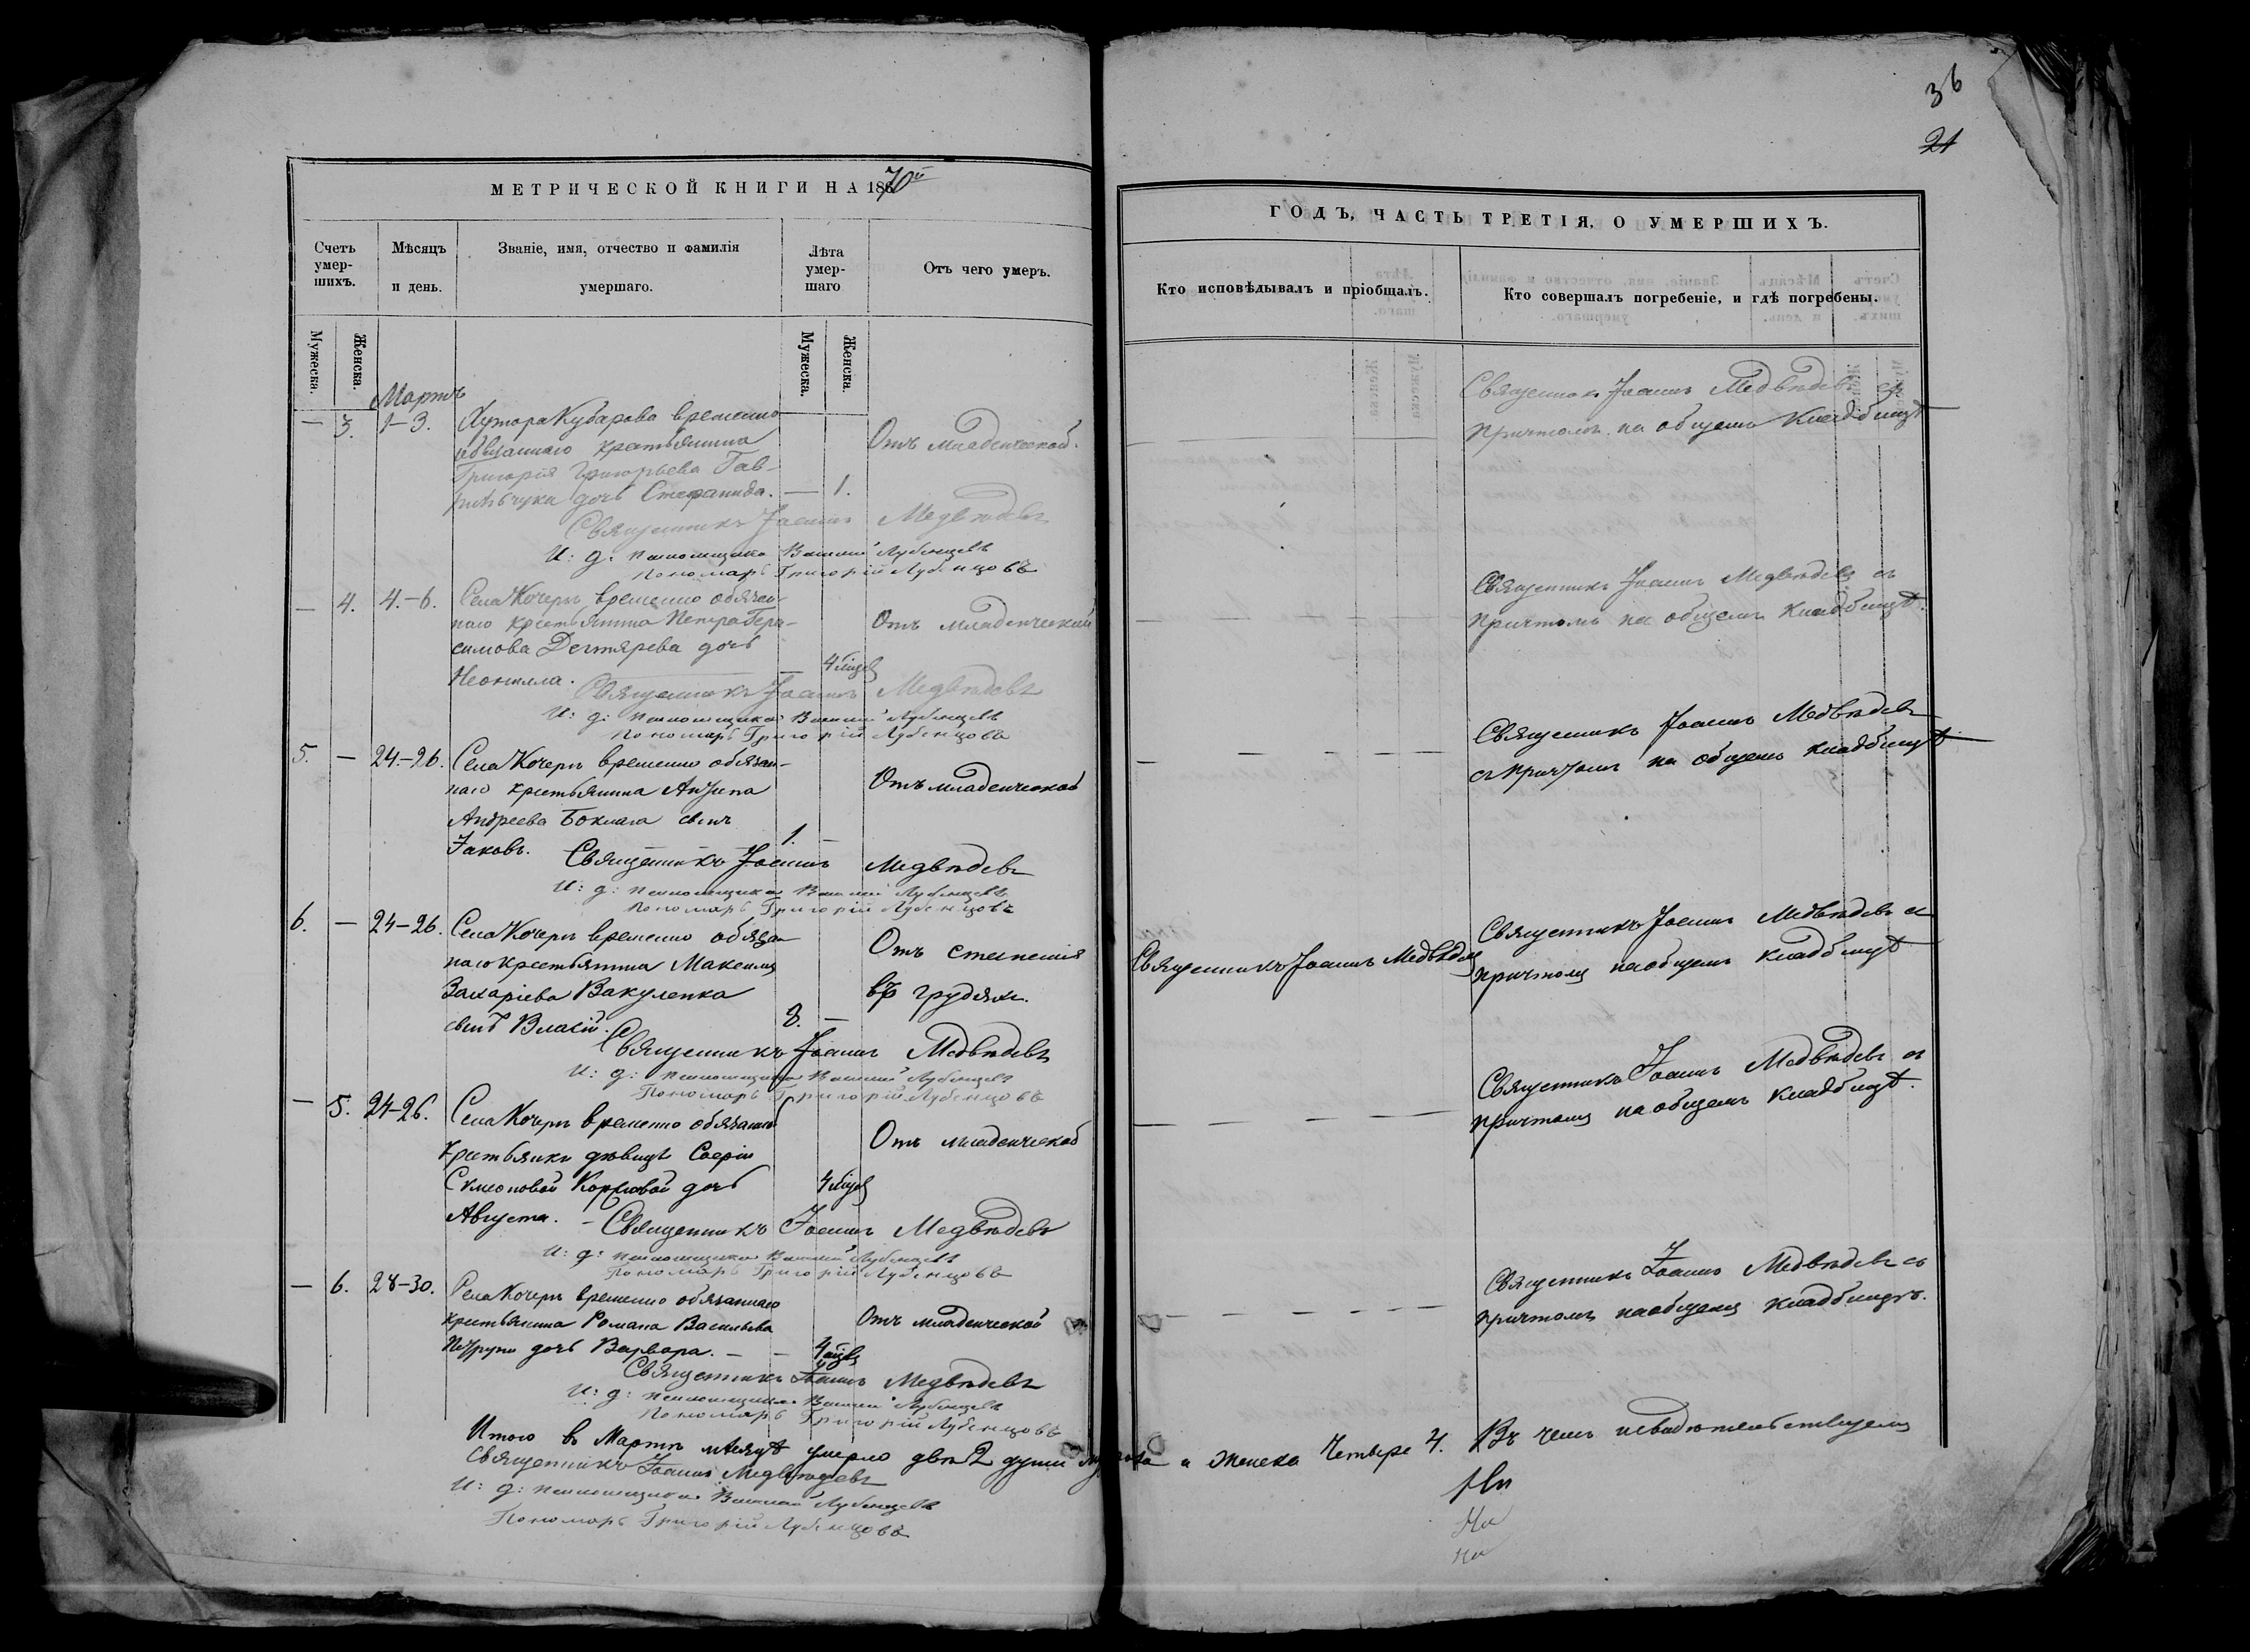 36
21
МЕТРИЧЕСКОЙ КНИГИ НА 1870й
Счетъ умер-шихъ.
Мѣсяцъ и день.
Званіе, имя, отчество и фамилія умершаго.
Лѣта умер-шаго
Отъ чего умеръ.
Мужеска.
Женска.
Мужеска.
Женска.
Мартъ
— 3. 1–3. Хутора Кубарова временно
обязаннаго крестьянина
Григорія Григорьева Гав-
рильчука дочь Стефанида. — 1.
Отъ младенческой.
Священникъ Іоаннъ Медвѣдевъ
И: д: псаломщика Василій Лубенцевъ
Пономарь Григорій Лубенцовъ
— 4. 4.–6. Села Кочеръ временно обязан-
наго крестьянина Петра Гера-
симова Дегтярева дочь
Неонилла. — 4 мѣсяц.
Отъ младенческой
Священникъ Іоаннъ Медвѣдевъ
И: д: псаломщика Василій Лубенцевъ
Пономарь Григорій Лубенцовъ
5. — 24.–26. Села Кочеръ временно обязан-
наго крестьянина Антипа
Андреева Боклага сынъ
Іаковъ. 1. —
Отъ младенческой
Священникъ Іоаннъ Медвѣдевъ
И: д: псаломщика Василій Лубенцевъ
Пономарь Григорій Лубенцовъ
6. — 24–26. Села Кочеръ временно обязан-
наго крестьянина Максима
Захаріева Вакуленка
сынъ Власій. 8. —
Отъ стесненія
въ грудяхъ.
Священникъ Іоаннъ Медвѣдевъ
И: д: псаломщика Василій Лубенцевъ
Пономарь Григорій Лубенцовъ
— 5. 24–26. Села Кочеръ временно обязанной
крестьянки дѣвицы Софіи
Симеоновой дочь
Августа. — 4 мѣсяц.
Отъ младенческой
Священникъ Іоаннъ Медвѣдевъ
И: д: псаломщика Василій Лубенцевъ
Пономарь Григорій Лубенцовъ
— 6. 28–30. Села Кочеръ временно обязаннаго
крестьянина Романа Васильева
дочь Варвара. — — 4 мѣсяц.
Отъ младенческой
Священникъ Іоаннъ Медвѣдевъ
И: д: псаломщика Василій Лубенцевъ
Пономарь Григорій Лубенцовъ
Итого въ Мартѣ мѣсяцѣ умерло двѣ 2 души мужеска и женска Четыре 4. Въ чемъ и свидѣтельствуемъ
Священникъ Іоаннъ Медвѣдевъ
И: д: псаломщика Василій Лубенцевъ
Пономарь Григорій Лубенцовъ
ГОДЪ, ЧАСТЬ ТРЕТІЯ, О УМЕРШИХЪ.
Кто исповѣдывалъ и пріобщалъ.
Кто совершалъ погребеніе, и гдѣ погребены.
Священникъ Іоаннъ Медвѣдевъ съ
причтомъ на общемъ кладбищѣ
Священникъ Іоаннъ Медвѣдевъ съ
причтомъ на общемъ кладбищѣ.
Священникъ Іоаннъ Медвѣдевъ
съ причтомъ на общемъ кладбищѣ
Священникъ Іоаннъ Медвѣдевъ
Священникъ Іоаннъ Медвѣдевъ съ
причтомъ на общемъ кладбищѣ
Священникъ Іоаннъ Медвѣдевъ съ
причтомъ на общемъ кладбищѣ.
Священникъ Іоаннъ Медвѣдевъ съ
причтомъ на общемъ кладбищѣ.